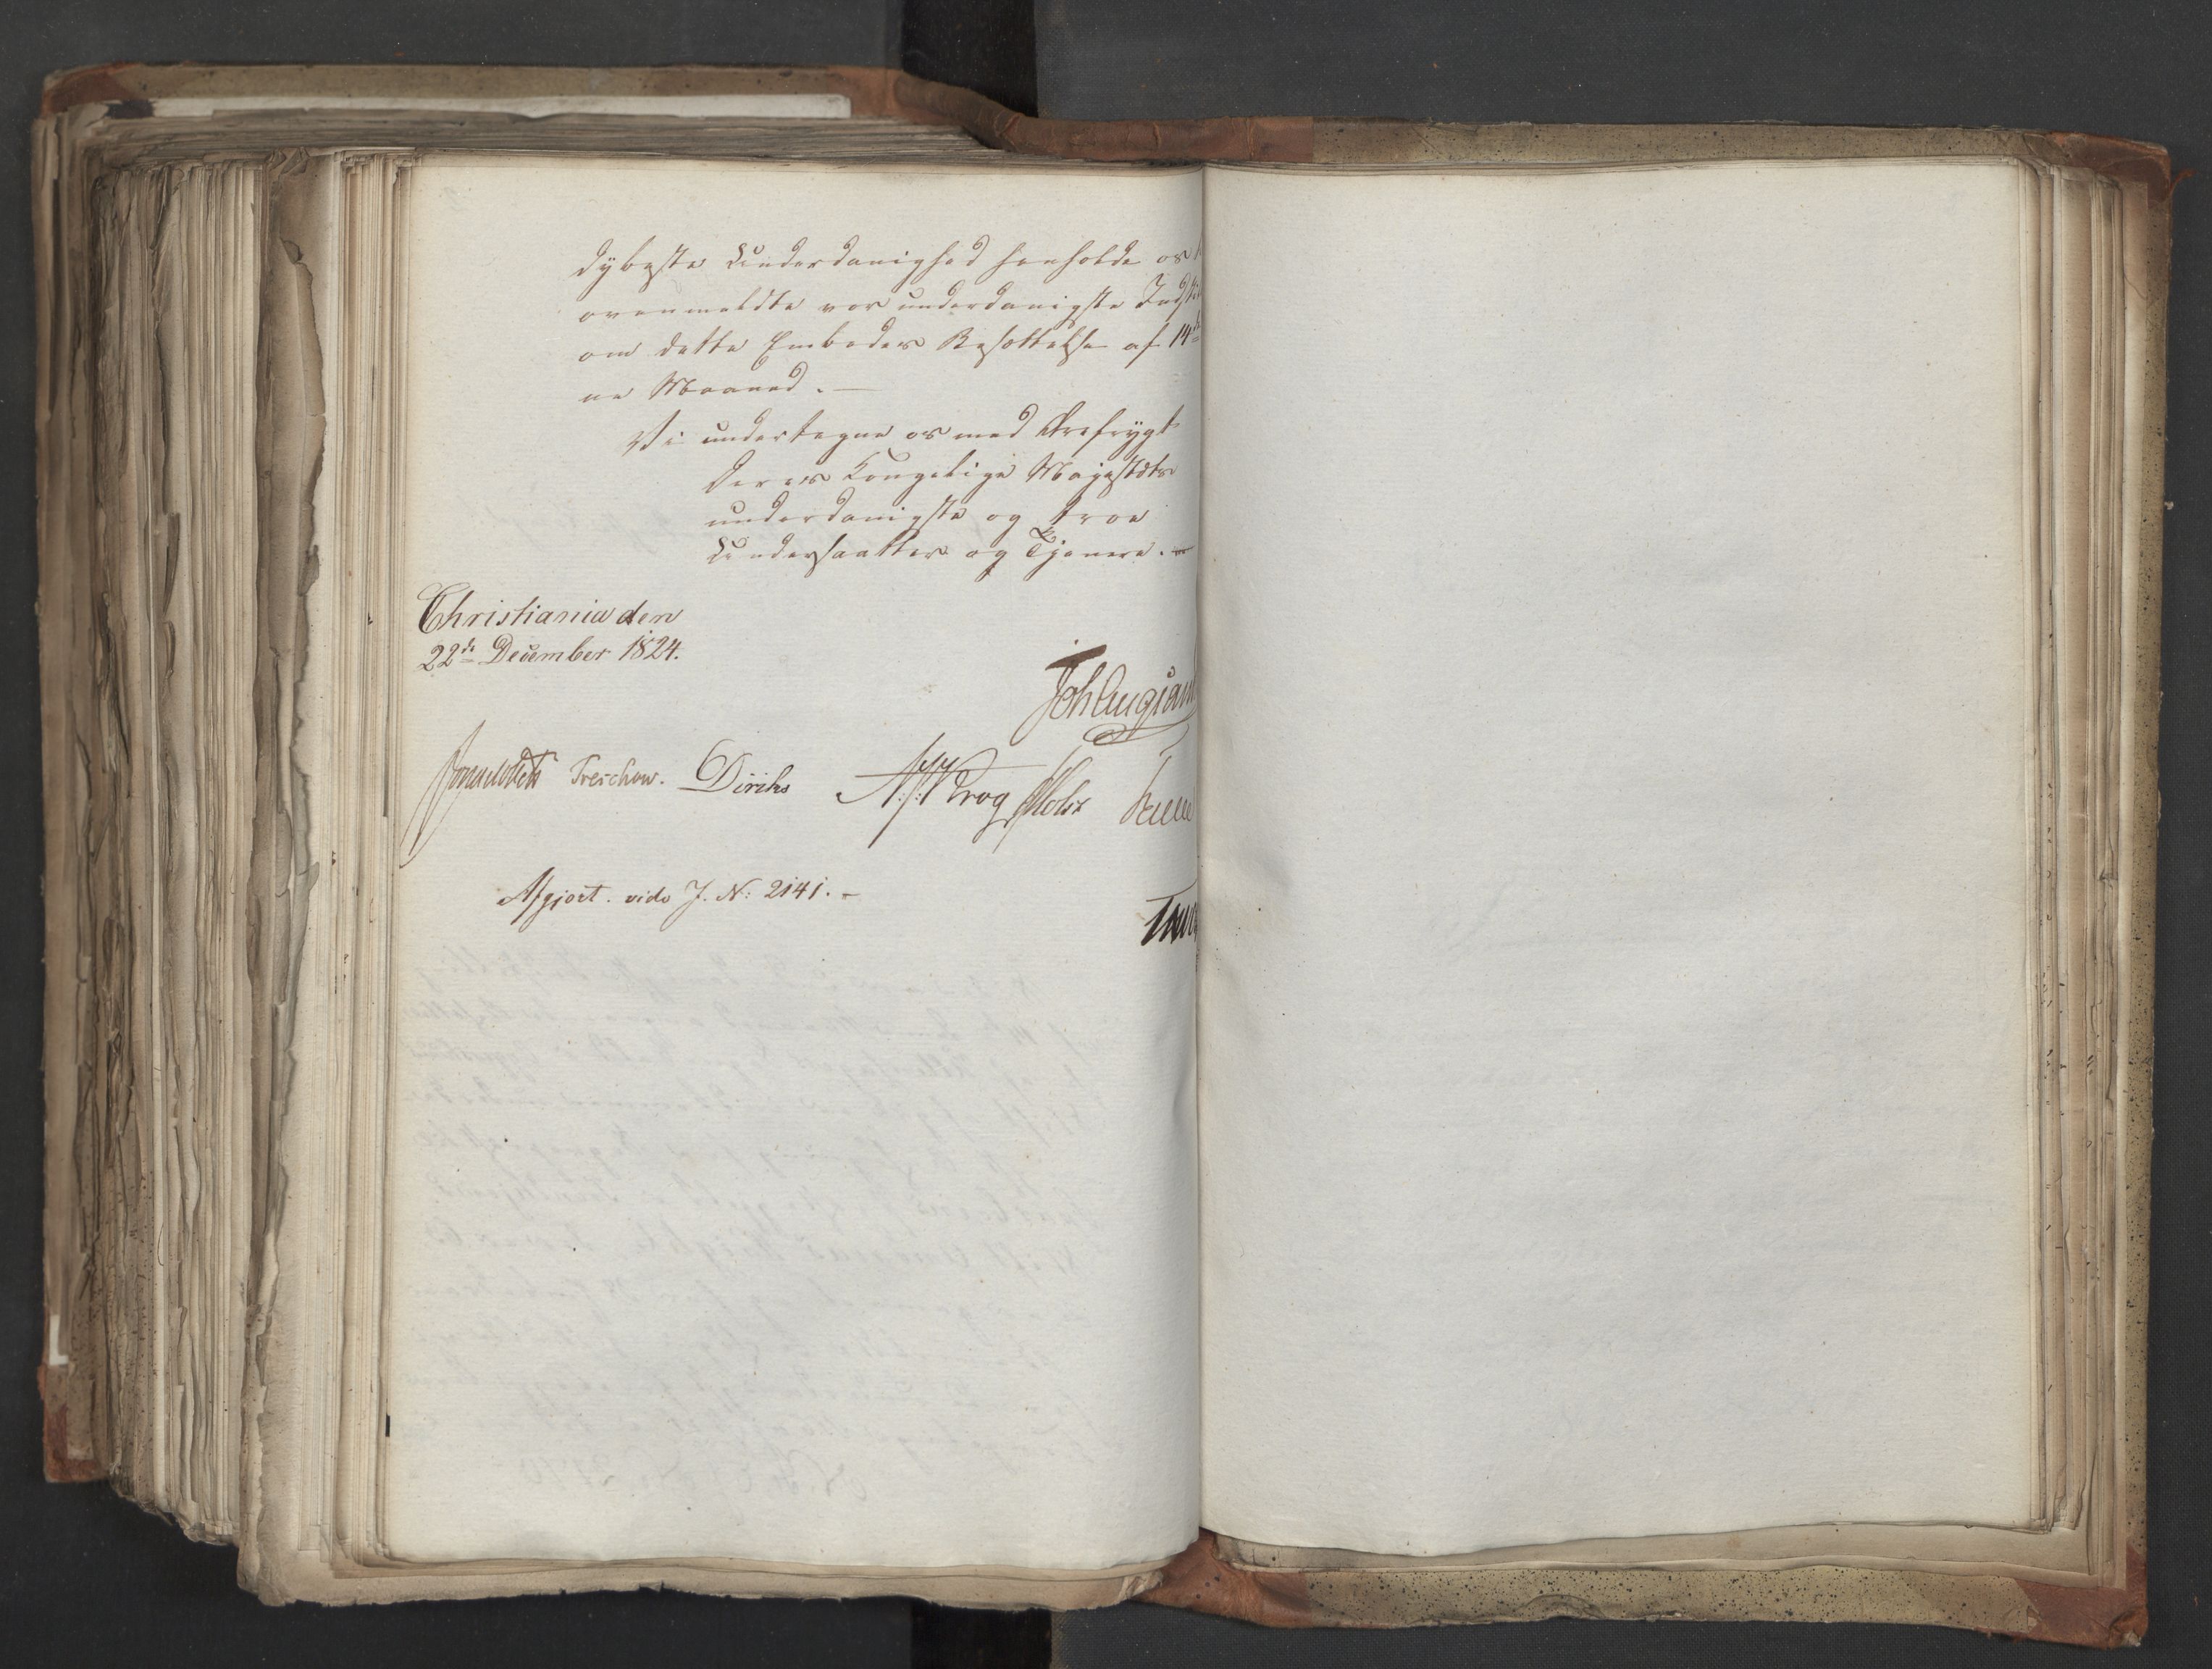 dybeste Underdanighed henholde os
ovenmeldte vor underdanigste Indsti
om dette Embedes Besættelse af 14de
ne Maaned. —
Vi undertegne os med Ærefrygt
Deres Kongelige Majestæts
underdanigste og troe
Undersaatter og Tjenere. —
Christiania den
22de December 1824.
Joh Aug Sand
Sommerhielm Treschow. Diriks A: f: Krog Holst
Afgjort. vide J. N: 2141. —